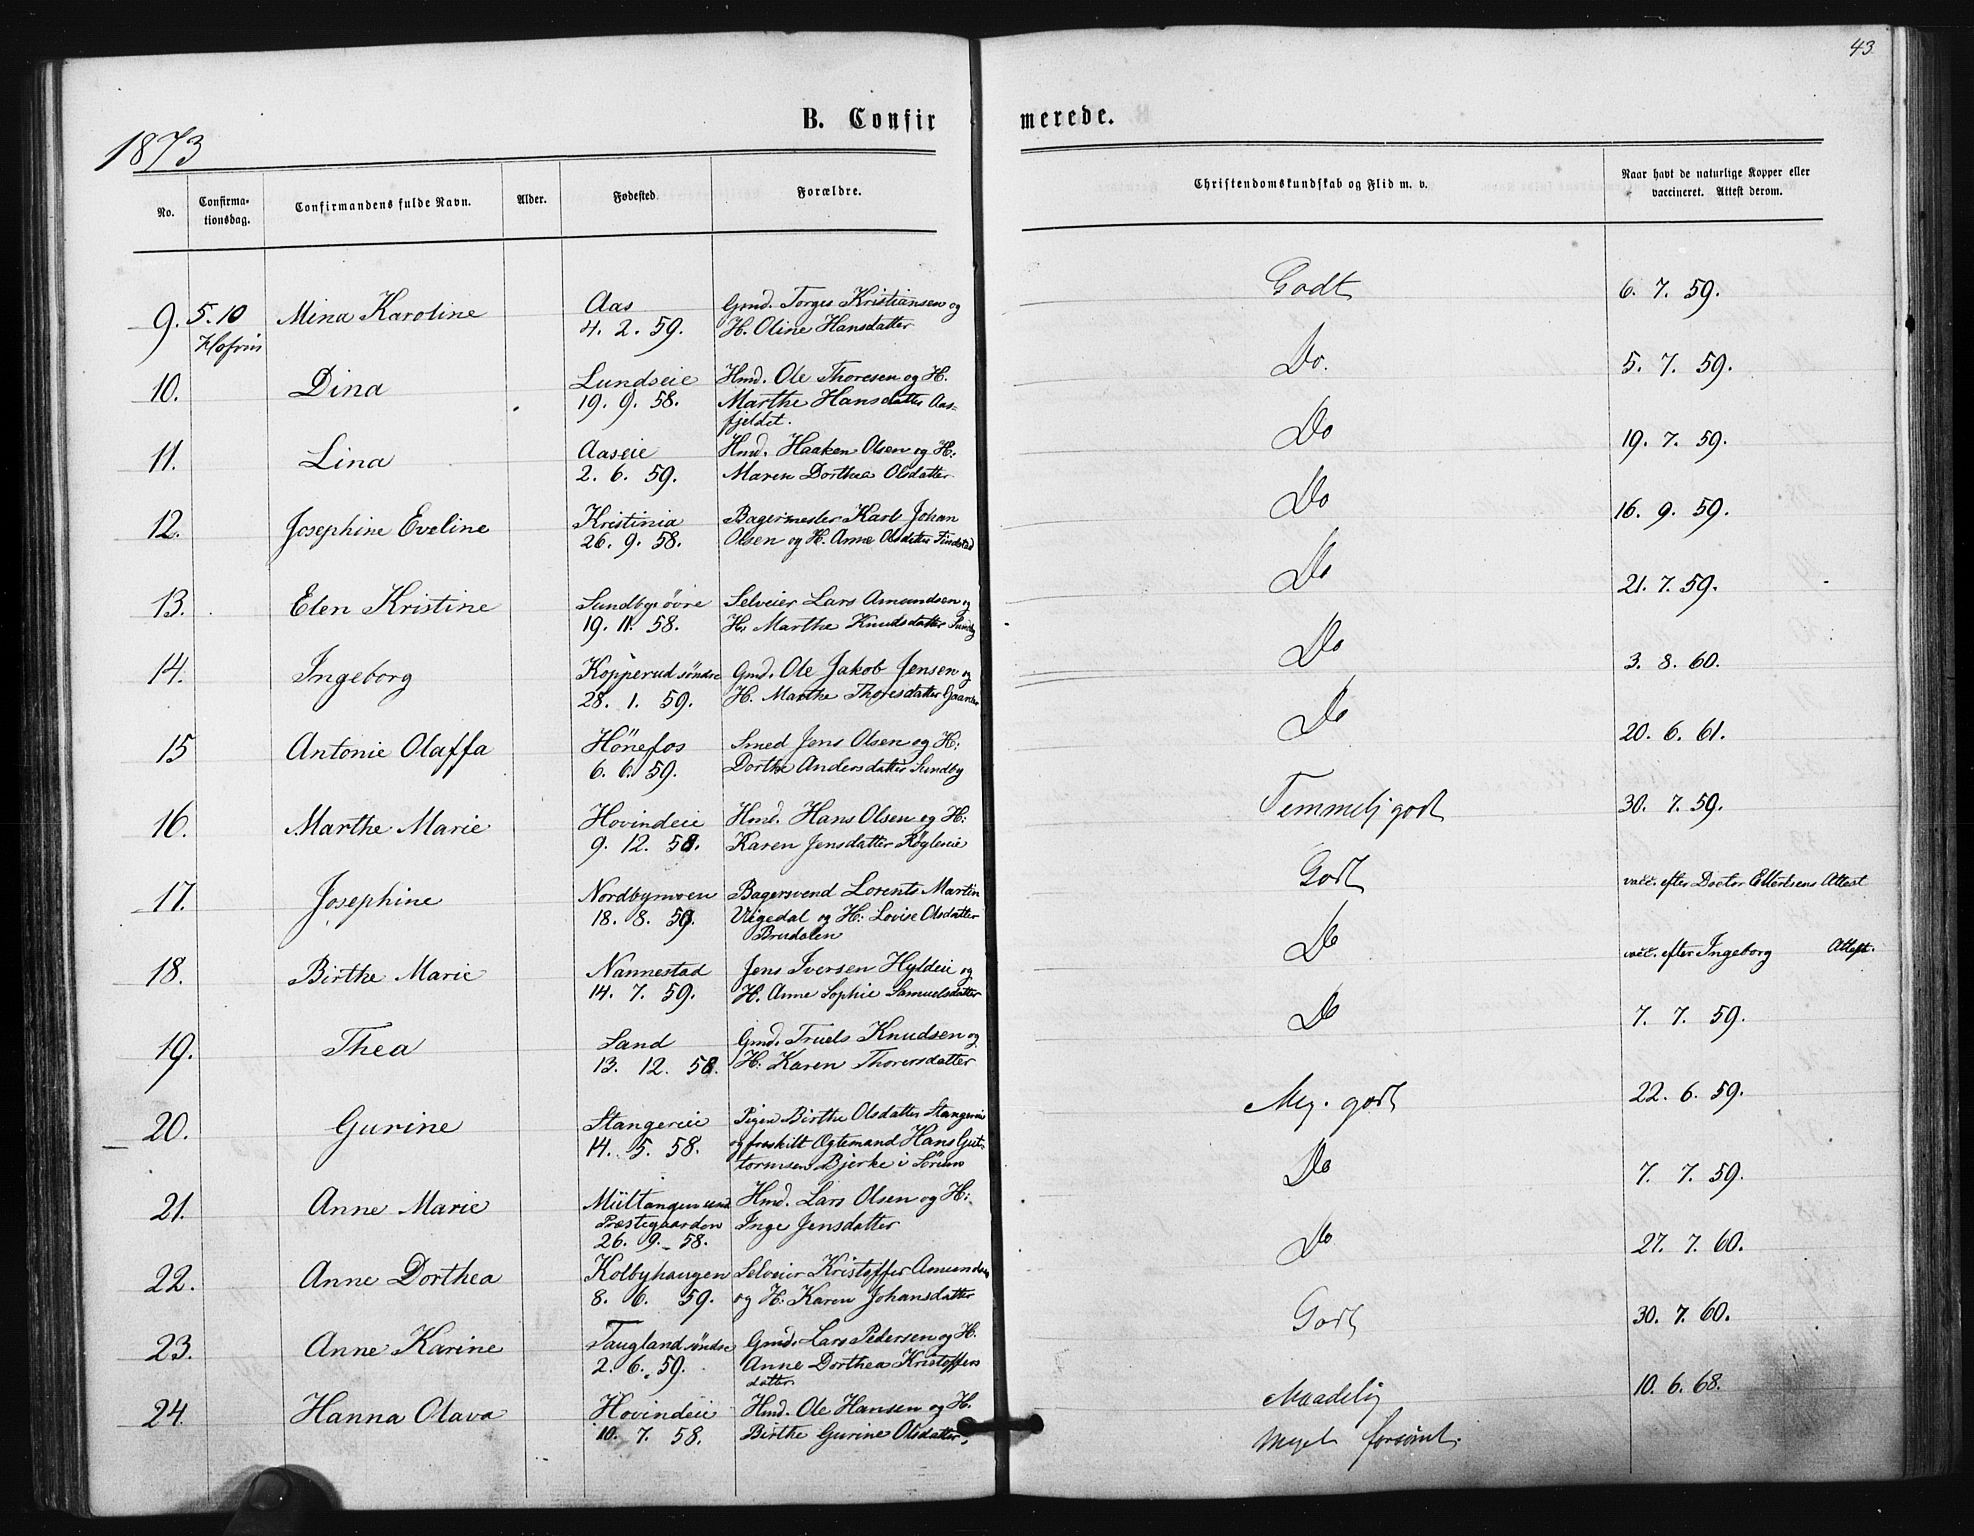 43
B. Confirmerede.
1873
No. Confirmationsdag. Confirmandens fulde Navn. Alder. Fødested. Forældre. Christendomskundskab og Flid m. v. Naar havt de naturlige Kopper eller vaccineret. Attest derom.
9. 5. 10 Mina Karoline Aas Gmd. Torges Kristiansen og Godt 6. 7. 59.
4. 2. 59. H. Oline Hansdatter
10. Dina Lundseie Hmd. Ole Thoresen og H. Do. 5. 7. 59.
19. 9. 58. Marthe Hansdatter Aas-
fjeldet.
11. Lina Aaseie Hmd. Haaken Olsen og H: Do 19. 7. 59.
2. 6. 59. Maren Dorthea Olsdatter
12. Josephine Eveline Kristinia Bagermester Karl Johan Do 16. 9. 59.
26. 9. 58. Olsen og H. Anne Olsdatter
13. Elen Kristine Sundby øvre Selveier Lars Amundsen og Do 21. 7. 59.
19. 11. 58. H: Marthe Knudsdatter Sundby
14. Ingeborg Kopperud søndre Gmd. Ole Jakob Jensen og Do 3. 8. 60.
28. 1. 59. H. Marthe Thoresdatter
15 Antonie Olaffa Hönefos Smed Jens Olsen og H: Do 20. 6. 61.
6. 6. 59. Dorthe Andersdatter Sundby
16. Marthe Marie Hovindeie Hmd. Hans Olsen og H: Temmelig godt 30. 7. 59.
9. 12. 58. Karen Jensdatter Rögleeie
17. Josephine Nordbymoen Bagersvend Lorents Martin Godt vacc. efter Doctor Ellertsens Attest
18. 8. 59. Vigedal og H: Lovise Olsdatter
Brudalen
18. Birthe Marie Nannestad Jens Iversen Hyldeie og Do vacc. efter Ingeborg Attest.
14. 7. 59. H. Anne Sophie Samuelsdatter
19. Thea Sand Gmd. Truels Knudsen og Do 7. 7. 59.
13. 12. 58. H: Karen Thorersdatter
20. Gurine Stangereie Pigen Birthe Olsdatter Stangereie Meg. godt 22. 6. 59.
14. 5. 58. og fraskilt Ægtemand Hans Gut-
tormsen Bjerke i Sörum
21. Anne Marie Hmd. Lars Olsen og H: Do 7. 7. 59.
Præstegaarden Inge Jensdatter
26. 9. 58.
22. Anne Dorthea Kolbyhaugen Selveier Kristoffer Amundsen Do 27. 7. 60.
8. 6. 59. og H: Karen Johansdatter
23. Anne Karine Taugland søndre Gmd. Lars Pedersen og H. Godt 30. 7. 60.
2. 6. 59. Anne Dorthea Kristoffers
datter
24. Hanna Olava Hovindeie Hmd. Ole Hansen og H. Maadelig 10. 6. 68.
10. 7. 58. Birthe Gurine Olsdatter. meget forsømt.